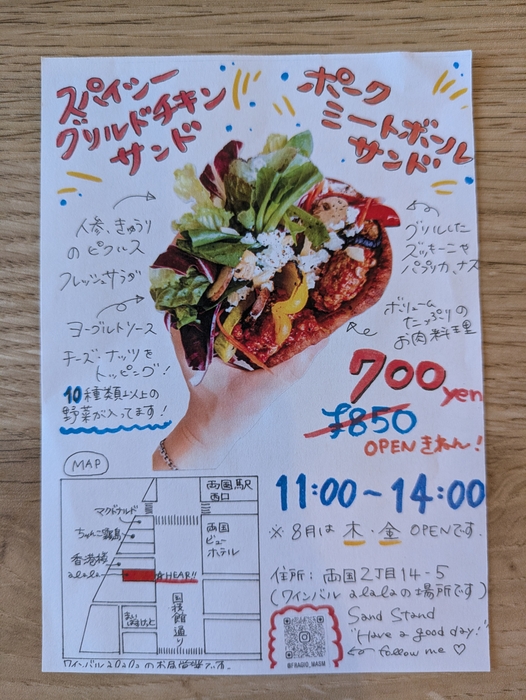 スパイシー
グリルドチキン
サンド
ポーク
ミートボール
サンド
人参、きゅうり
のピクルス
フレッシュサラダ
ヨーグルトソース
チーズ・ナッツを
トッピング!
10種類以上の
野菜が入ってます!
グリルした
ズッキーニや
パプリカ、ナス
ボリューム
たっぷりの
お肉料理
700yen
¥850
OPENきねん!
MAP
両国駅
西口
マクドナルド
ちゃんこ霧島
両国
ビュー
ホテル
香港楼
alala
★HEAR!!
まいばすけっと
国技館通り
ワインバルalalaのお店
11:00~14:00
※8月は木・金OPENです.
住所:両国2丁目14-5
(ワインバルalalaの場所です)
Sand Stand
"Have a good day!"
follow me ♡
@FRAGIO_WASM